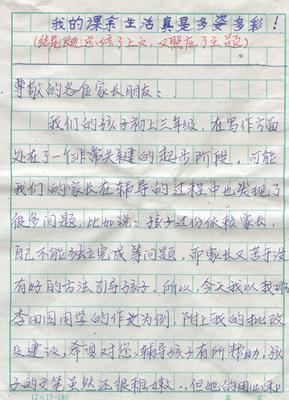 我的课余生活真是多姿多彩！
(结尾既总结了上文，又照应了主题)
尊敬的各位家长朋友：
我们的孩子初上三年级，在写作方面
处在了一个非常关键的起步阶段，可能
我们的家长在辅导的过程中也出现了
很多问题，比如说：孩子过份依赖家长，
自己不能独立完成等问题，而家长又苦于没
有好的方法引导孩子。所以，今天我以我班
李田田同学的作文为例，附上我的批改
及建议，希望对您辅导孩子有所帮助，孩
子的文笔虽然还很稚嫩，但她的用心和
12×15=180